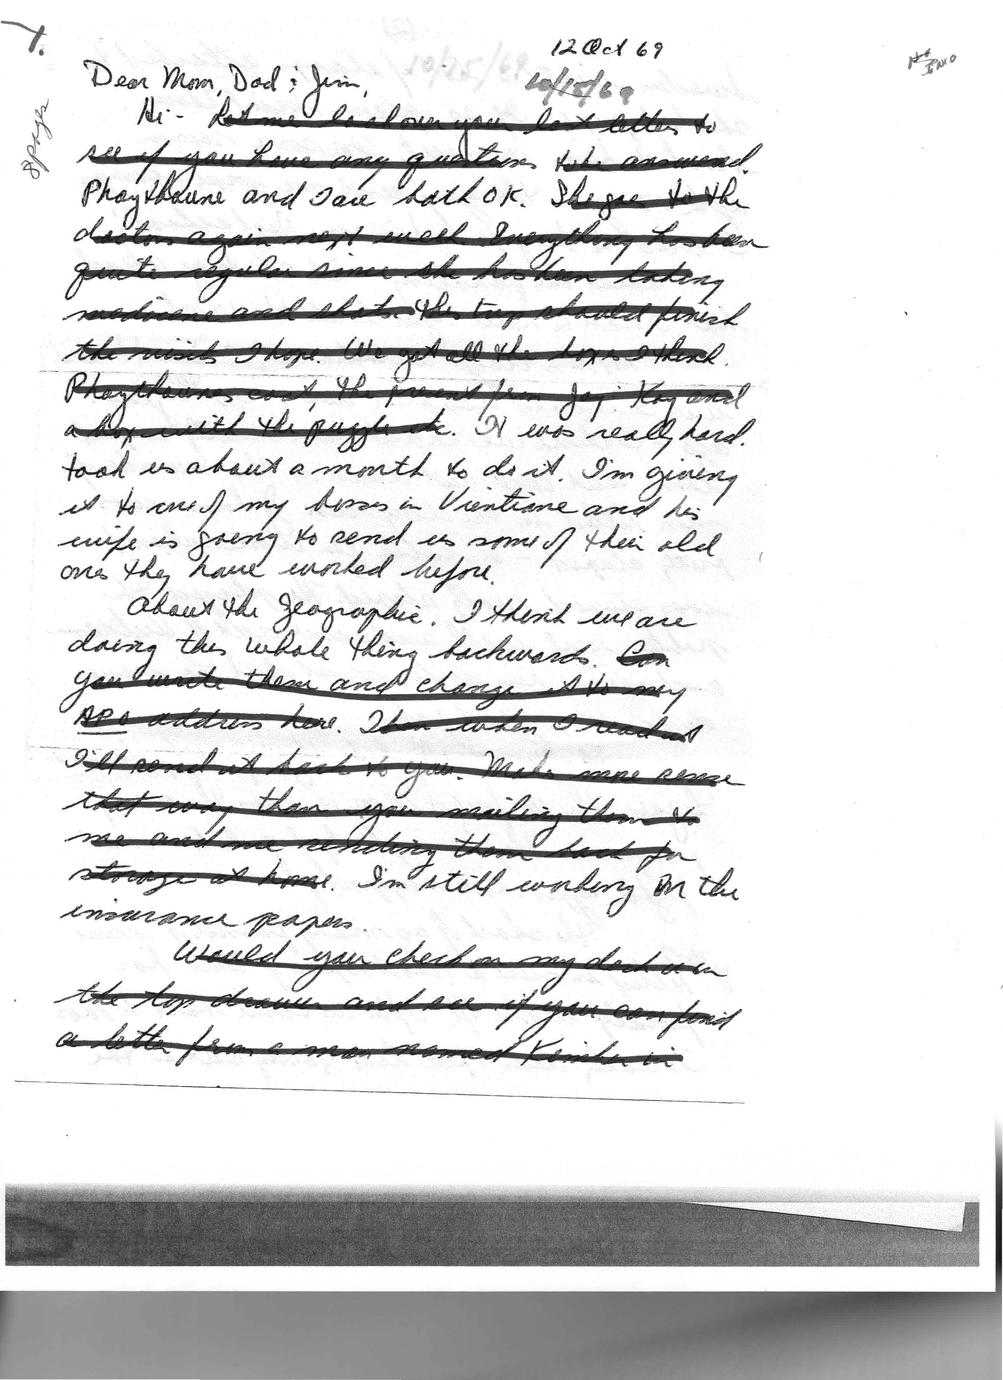 1.
12 Oct 69
10/15/69
No
INFO
8 pages
Dear Mom, Dad & Jim,
Hi - Let me look over your last letter to
see if you have any questions to be answered.
Phaythoune and I are both OK. She goes to the
doctors again next week. Everything has been
quite regular since she has been taking
medicine and shots. This trip should finish
the visits I hope. We got all the boxes I think.
Phaythounes coat, the present from Jay & Kay and
a box with the puzzle etc. It was really hard.
took us about a month to do it. I'm giving
it to one of my bosses in Vientiane and his
wife is going to send us some of their old
ones they have worked before.
About the Geographic. I think we are
doing this whole thing backwards. Can
you write them and change it to my
APO address here. Then when I read it
I'll send it back to you. Make more sense
that way than you mailing them to
me and me sending them back for
storage at home. I'm still working on the
insurance papers.
Would you check on my desk or in
the top drawer and see if you can find
a letter from a man named in